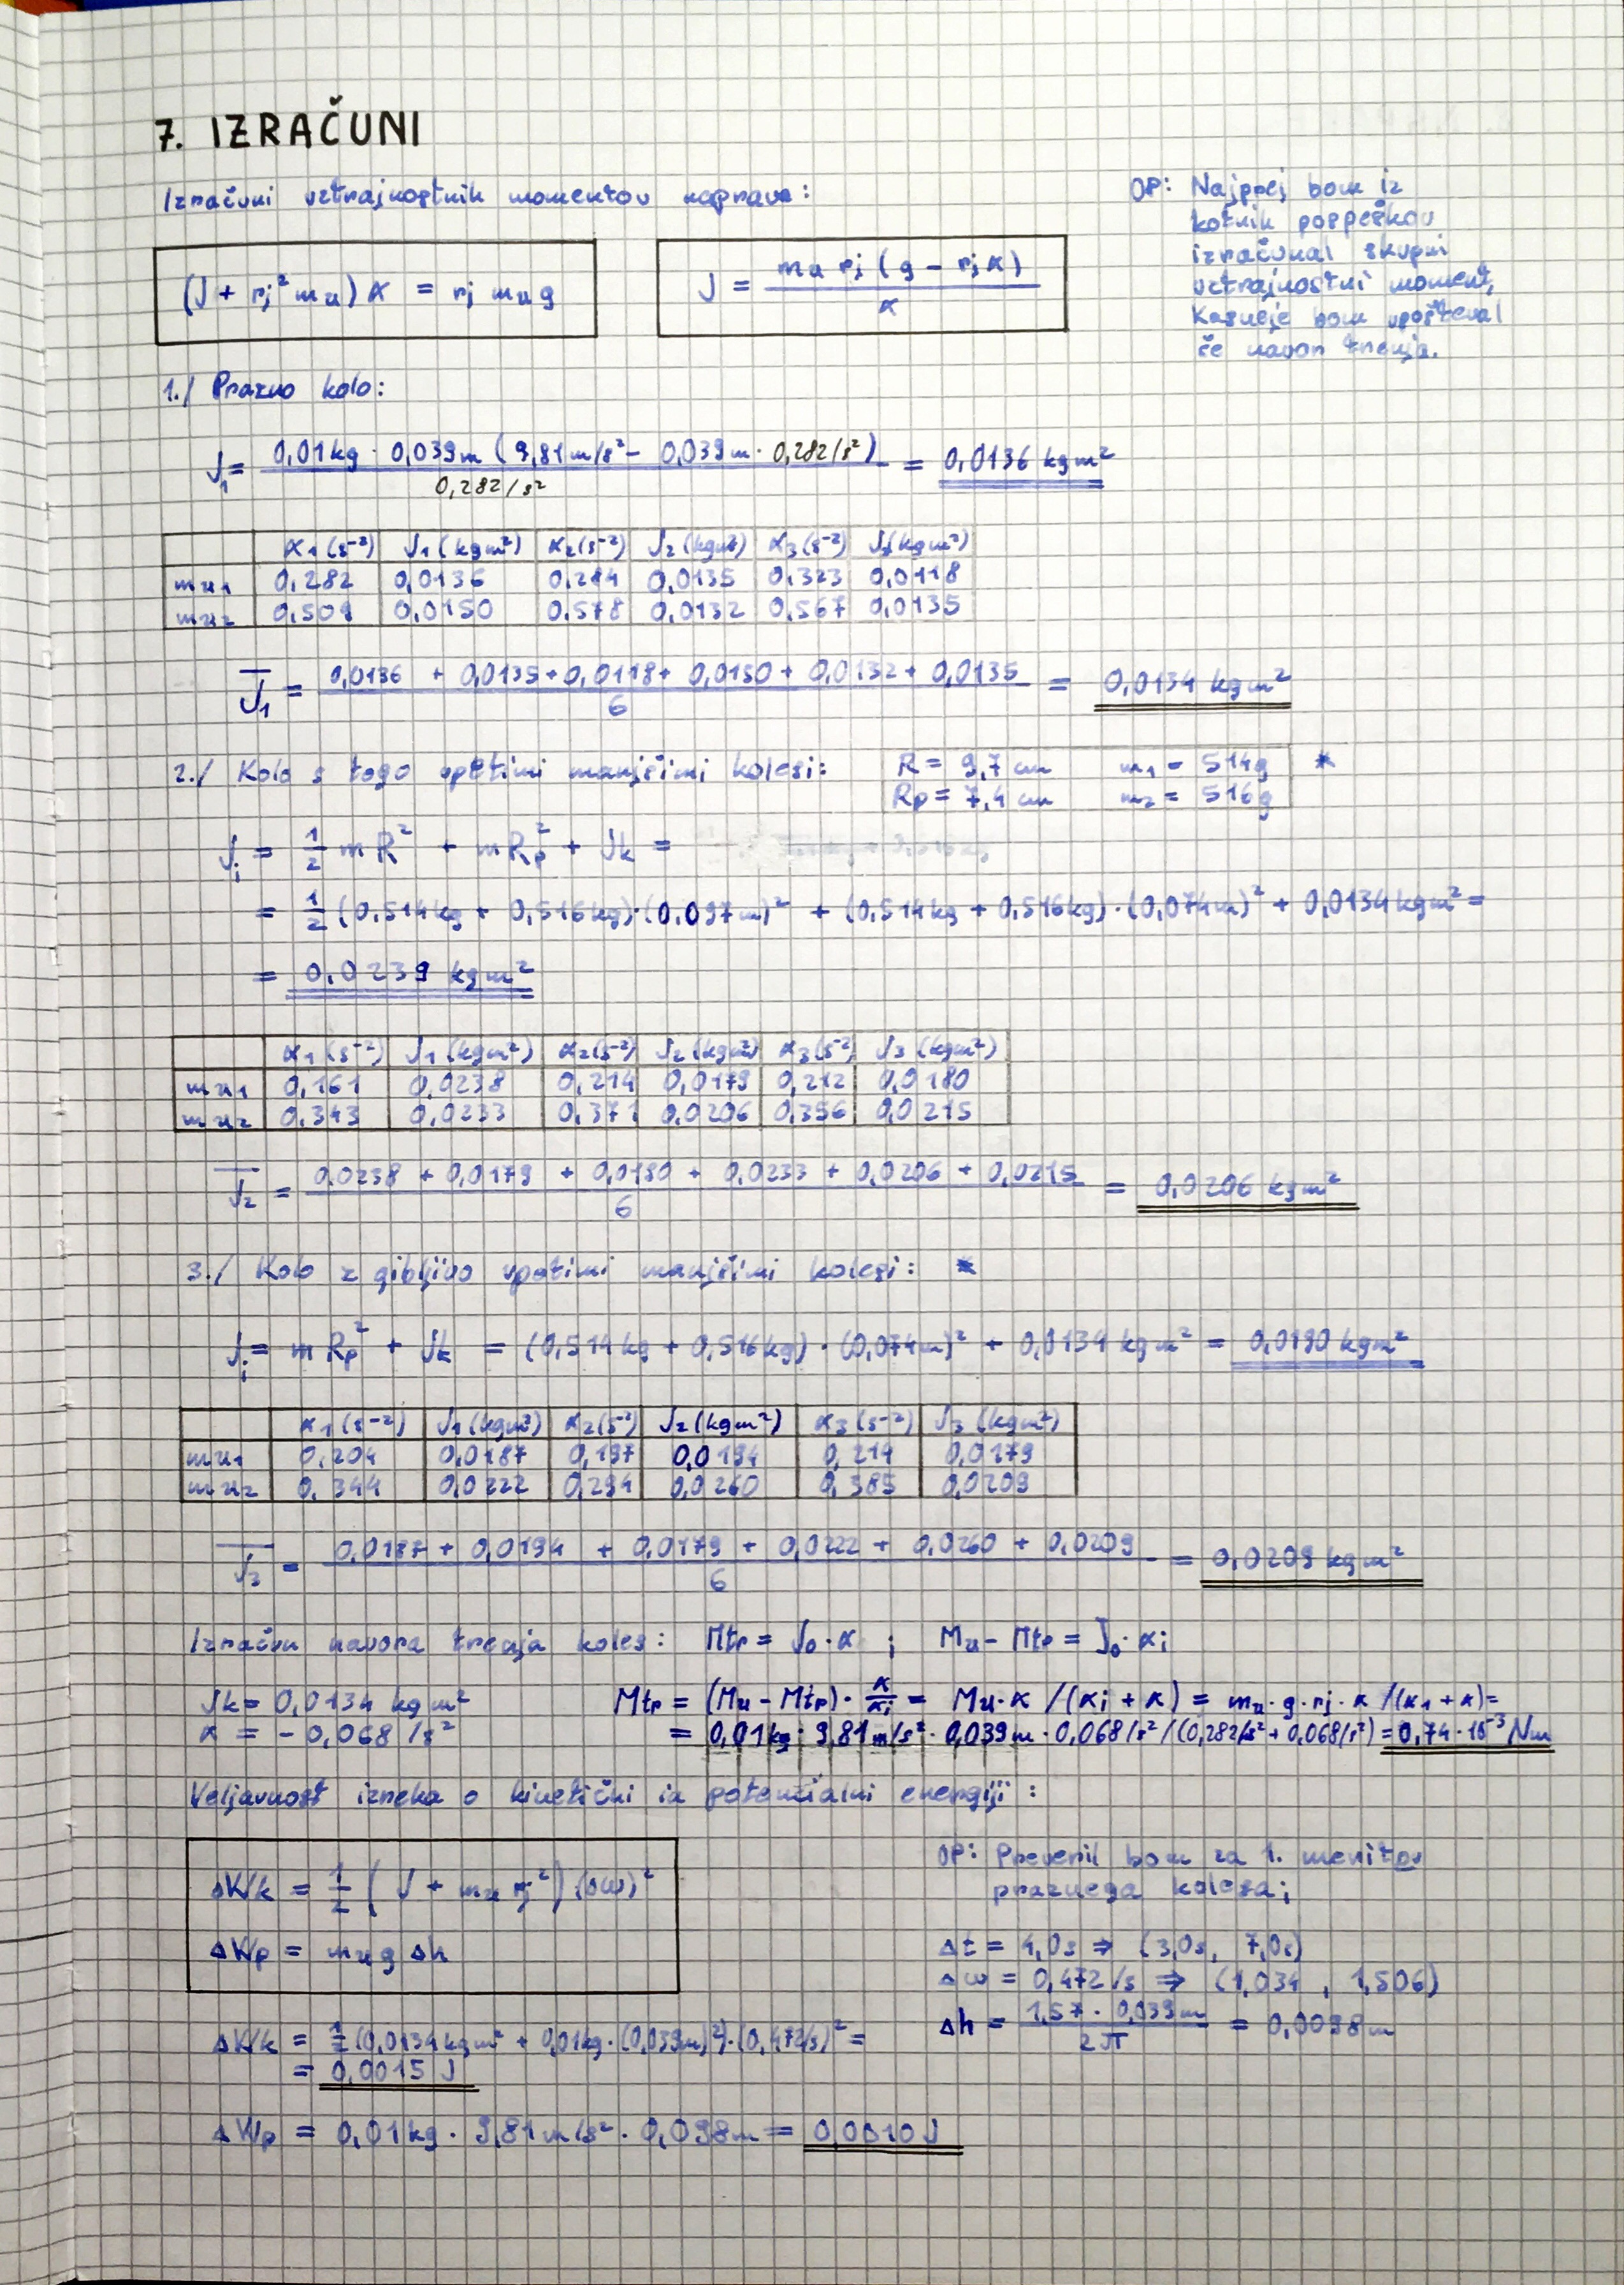 7. IZRAČUNI
Izračuni vztrajnostnih momentov naprave:
OP: Najprej bom iz
kotnih pospeškov
izračunal skupni
vztrajnostni moment,
Kasneje bom upošteval
še navor trenja.
(J + rj² mu) α = rj mu g
J = mu rj (g - rj α) / α
1./ Prazno kolo:
J₁ = 0,01kg · 0,039m (9,81m/s² - 0,039m · 0,282/s²) / 0,282/s² = 0,0136 kgm²
α₁(s⁻²) J₁(kgm²) α₂(s⁻²) J₂(kgm²) α₃(s⁻²) J₃(kgm²)
mu₁ 0,282 0,0136 0,284 0,0135 0,323 0,0118
mu₂ 0,509 0,0150 0,578 0,0132 0,567 0,0135
J₁ = 0,0136 + 0,0135 + 0,0118 + 0,0150 + 0,0132 + 0,0135 / 6 = 0,0134 kgm²
2./ Kolo s togo vpetimi manjšimi kolesi: R = 9,7 cm m₁ = 514g *
Rp = 7,4 cm m₂ = 516g
Ji = 1/2 mR² + mRp² + Jk =
= 1/2 (0,514kg + 0,516kg)·(0,097m)² + (0,514kg + 0,516kg)·(0,074m)² + 0,0134kgm² =
= 0,0239 kgm²
α₁(s⁻²) J₁(kgm²) α₂(s⁻²) J₂(kgm²) α₃(s⁻²) J₃(kgm²)
mu₁ 0,161 0,0238 0,214 0,0179 0,212 0,0180
mu₂ 0,343 0,0233 0,371 0,0206 0,356 0,0215
J₂ = 0,0238 + 0,0179 + 0,0180 + 0,0233 + 0,0206 + 0,0215 / 6 = 0,0206 kgm²
3./ Kolo z gibljivo vpetimi manjšimi kolesi: *
Ji = mRp² + Jk = (0,514kg + 0,516kg)·(0,074m)² + 0,0134 kgm² = 0,0190 kgm²
α₁(s⁻²) J₁(kgm²) α₂(s⁻²) J₂(kgm²) α₃(s⁻²) J₃(kgm²)
mu₁ 0,204 0,0187 0,197 0,0194 0,214 0,0179
mu₂ 0,344 0,0222 0,294 0,0260 0,385 0,0209
J₃ = 0,0187 + 0,0194 + 0,0179 + 0,0222 + 0,0260 + 0,0209 / 6 = 0,0209 kgm²
Izračun navora trenja koles: Mtr = J₀·α ; Mu - Mtr = J₀·αi
Jk = 0,0134 kgm²
α = -0,068 /s²
Mtr = (Mu - Mtr)·α/αi = Mu·α /(αi + α) = mu·g·rj·α /(α₁ + α) =
= 0,01kg · 9,81m/s² · 0,039m · 0,068/s² /(0,282/s² + 0,068/s²) = 0,74·10⁻³ Nm
Veljavnost izreka o kinetični in potencialni energiji:
ΔWk = 1/2 (J + mu rj²)·(Δω)²
ΔWp = mu g Δh
OP: Preveril bom za 1. meritev
praznega kolesa;
Δt = 4,0s ⇒ (3,0s, 7,0s)
Δω = 0,472/s ⇒ (1,034 , 1,506)
Δh = 1,57 · 0,039m / 2π = 0,0098m
ΔWk = 1/2 (0,0134kgm² + 0,01kg·(0,039m)²)·(0,472/s)² =
= 0,0015 J
ΔWp = 0,01kg · 9,81m/s² · 0,098m = 0,0010J